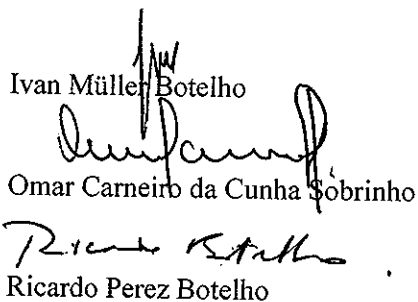 Ivan Müller Botelho
Omar Carneiro da Cunha Sobrinho
Ricardo Botelho
Ricardo Perez Botelho